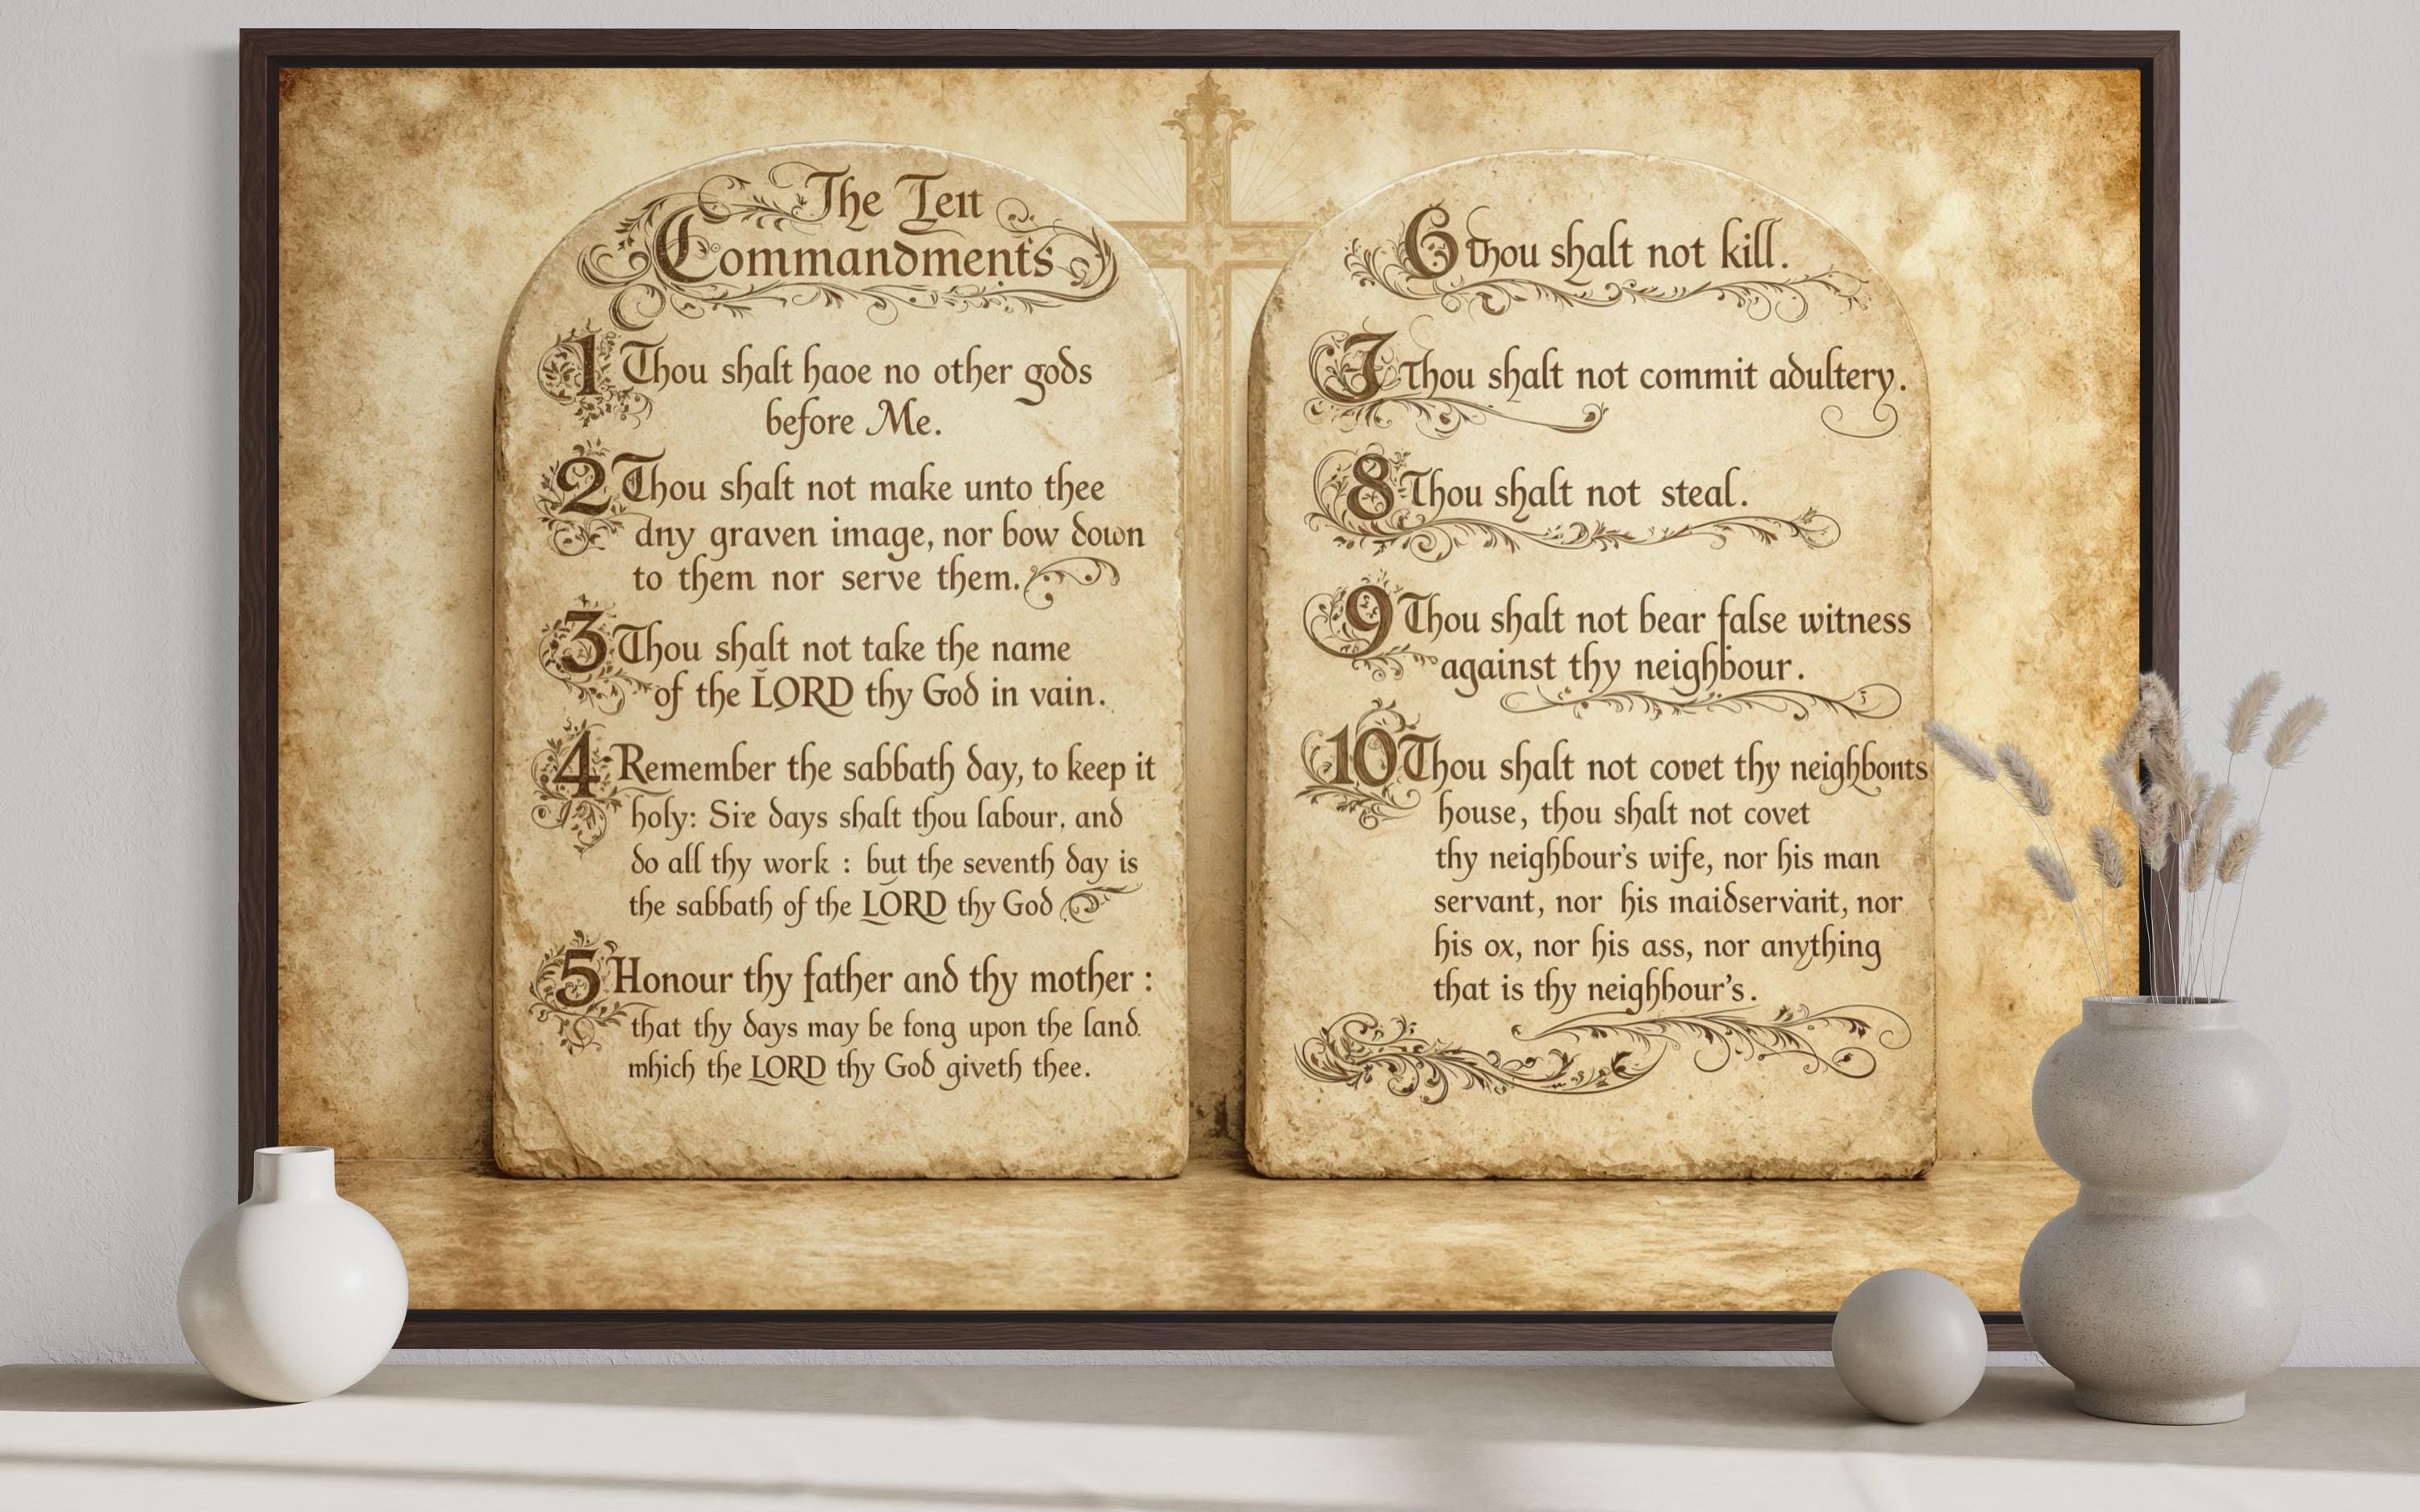 The Tert
Commandments
1 Thou shalt haoe no other gods
before Me.
2 Thou shalt not make unto thee
dny graven image, nor bow down
to them nor serve them.
3 Thou shalt not take the name
of the LORD thy God in vain.
4 Remember the sabbath day, to keep it
holy: Sire days shalt thou labour, and
do all thy work : but the seventh day is
the sabbath of the LORD thy God
5 Honour thy father and thy mother :
that thy days may be fong upon the land.
mhich the LORD thy God giveth thee.
6 thou shalt not kill.
7 Thou shalt not commit adultery.
8 Thou shalt not steal.
9 Thou shalt not bear false witness
against thy neighbour.
10 Thou shalt not covet thy neighbonts
house, thou shalt not covet
thy neighbour's wife, nor his man
servant, nor his maidservant, nor
his ox, nor his ass, nor anything
that is thy neighbour's.